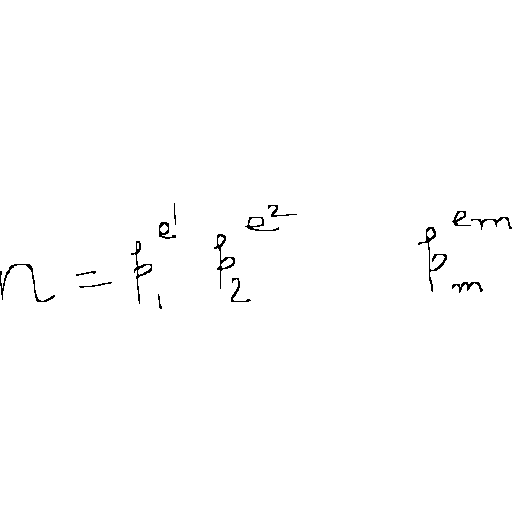 n = p₁^{e1} p₂^{e2} p_m^{em}